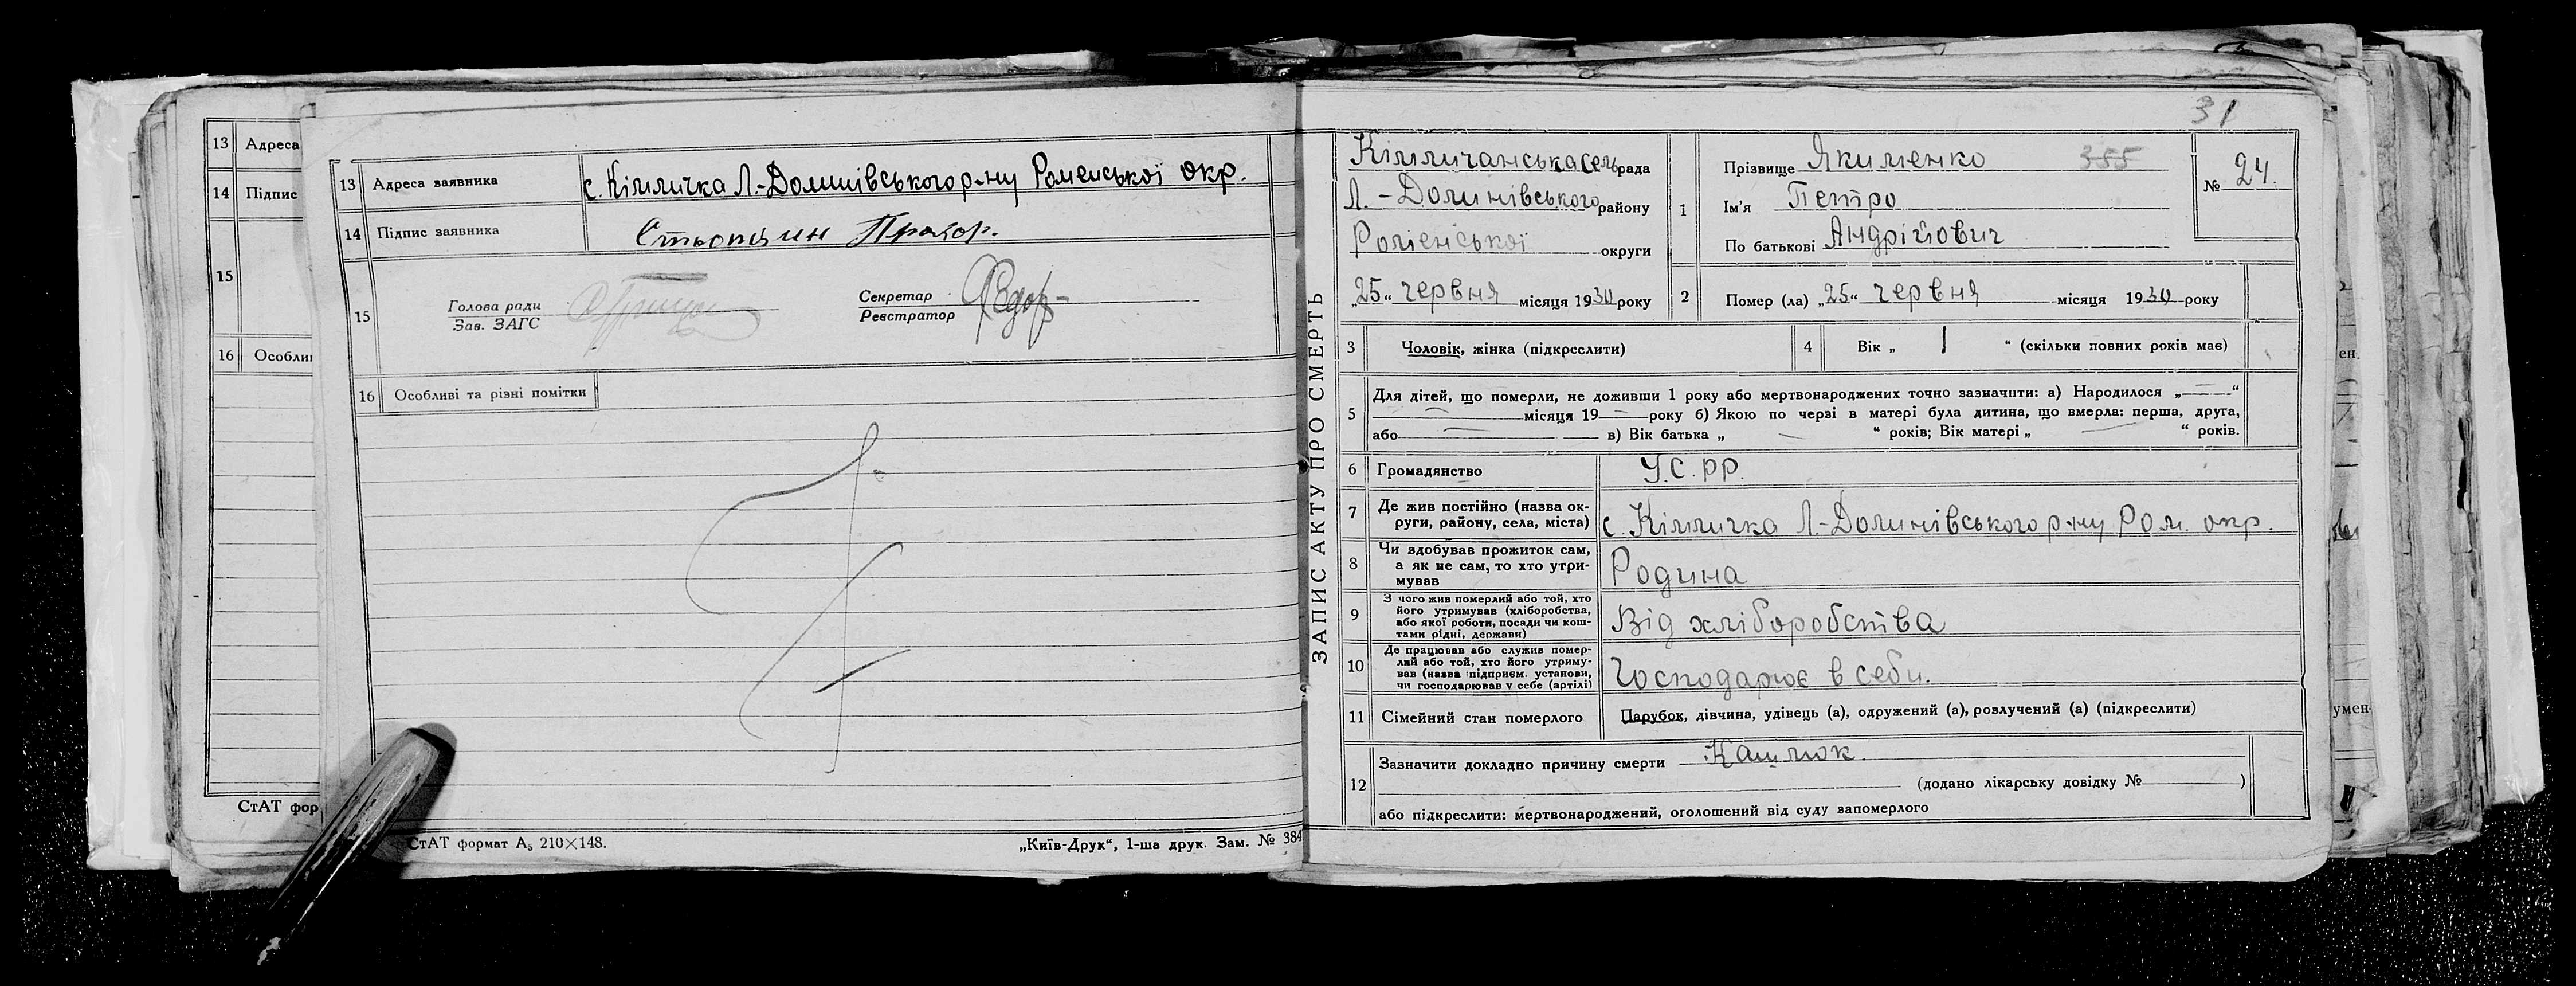 13 Адреса
14 Підпис
15
16 Особли
СтАТ фор
13 Адреса заявника с. Кімличка Л.-Долинівського р-ну Роменської окр.
14 Підпис заявника Прохор.
15 Голова ради
Зав. ЗАГС
Секретар
Реєстратор
16 Особливі та різні помітки
СтАТ формат А5 210×148.
„Київ-Друк“, 1-ша друк. Зам. № 384
31
ЗАПИС АКТУ ПРО СМЕРТЬ
Кімличанська сельрада
Л.-Долинівського району
Роменської округи
„25“ червня місяця 1930 року
1 Прізвище Якименко 355
Ім'я Петро
По батькові Андрійович
№ 24.
2 Помер (ла) „25“ червня місяця 1930 року
3 Чоловік, жінка (підкреслити)
4 Вік „ 1 “ (скільки повних років має)
5 Для дітей, що померли, не доживши 1 року або мертвонароджених точно зазначити: а) Народилося „—“
— місяця 19 — року б) Якою по черзі в матері була дитина, що вмерла: перша, друга,
або — в) Вік батька „ — “ років; Вік матері „ — “ років.
6 Громадянство У.С.РР.
7 Де жив постійно (назва ок-
руги, району, села, міста) с. Кімличка Л.-Долинівського р-ну Ром. окр.
8 Чи здобував прожиток сам,
а як не сам, то хто утри-
мував Родина
9 З чого жив померлий або той, хто
його утримував (хліборобства,
або якої роботи, посади чи кош-
тами рідні, держави) Від хліборобства
10 Де працював або служив помер-
лий або той, хто його утриму-
вав (назва підприєм. установи,
чи господарював у себе (артілі) Господарює в себи.
11 Сімейний стан померлого Парубок, дівчина, удівець (а), одружений (а), розлучений (а) (підкреслити)
12 Зазначити докладно причину смерти Кашлюк.
(додано лікарську довідку № )
або підкреслити: мертвонароджений, оголошений від суду запомерлого
ен.
умен-